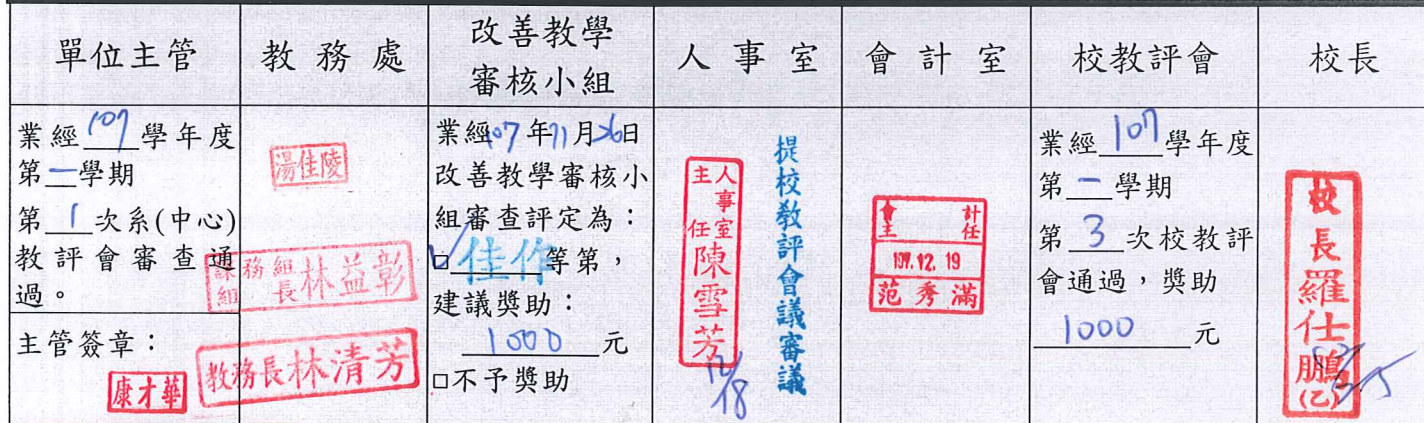 單位主管
教務處
改善教學
審核小組
人事室
會計室
校教評會
校長
業經107學年度
第一學期
第1次系(中心)
教評會審查通
過。
主管簽章:
康才華
湯佳陵
課務組
組長林益彰
教務長林清芳
業經107年11月26日
改善教學審核小
組審查評定為:
□佳作等第,
建議獎助:
1000元
□不予獎助
人事室
主任陳雪芳
12/18
提校教評會議審議
會計
主任
107.12.19
范秀滿
業經107學年度
第一學期
第3次校教評
會通過,獎助
1000元
校長羅仕鵬
(乙)